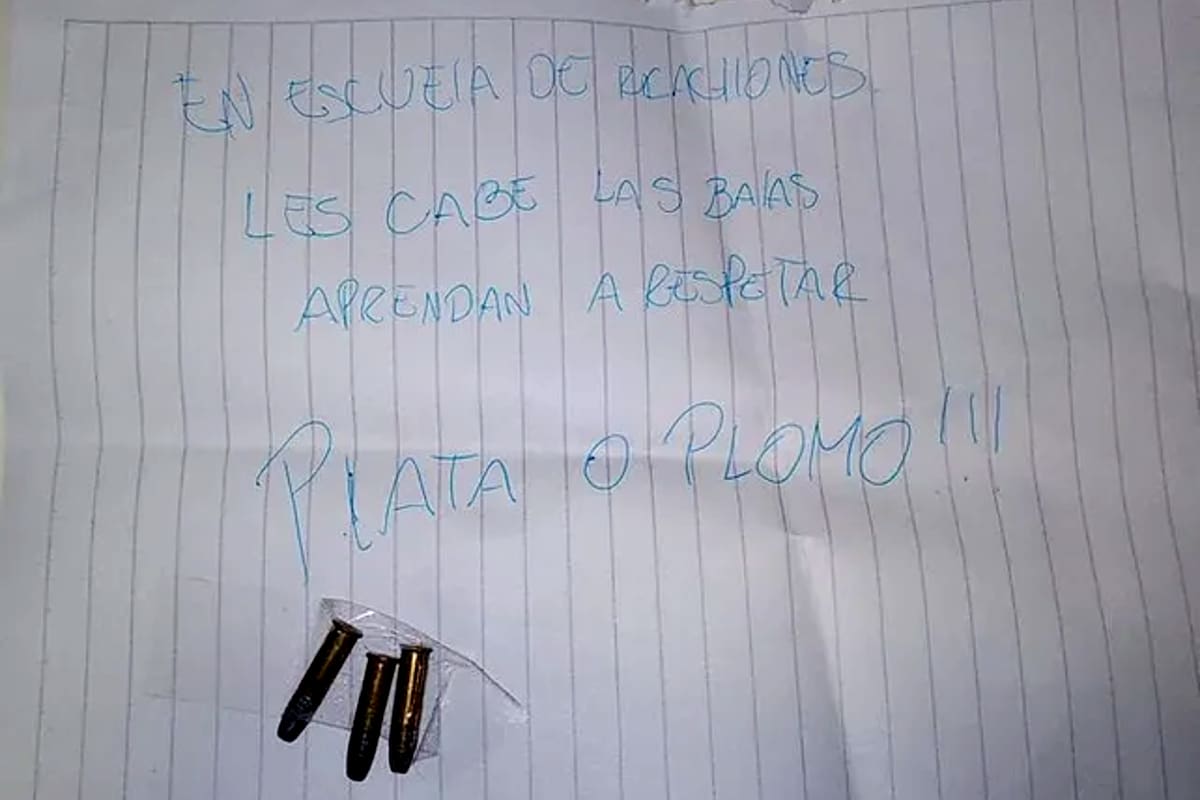 EN ESCUELA DE RICACHONES.
LES CABE LAS BALAS
APRENDAN A RESPETAR
PLATA O PLOMO!!!